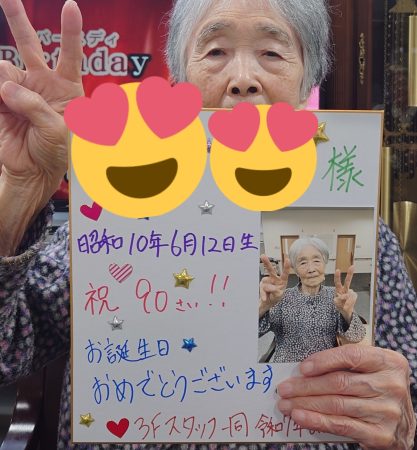 バースディ
Birthday
様
昭和10年6月12日生
祝 90さい!!
お誕生日
おめでとうございます
3Fスタッフ一同 令和7年